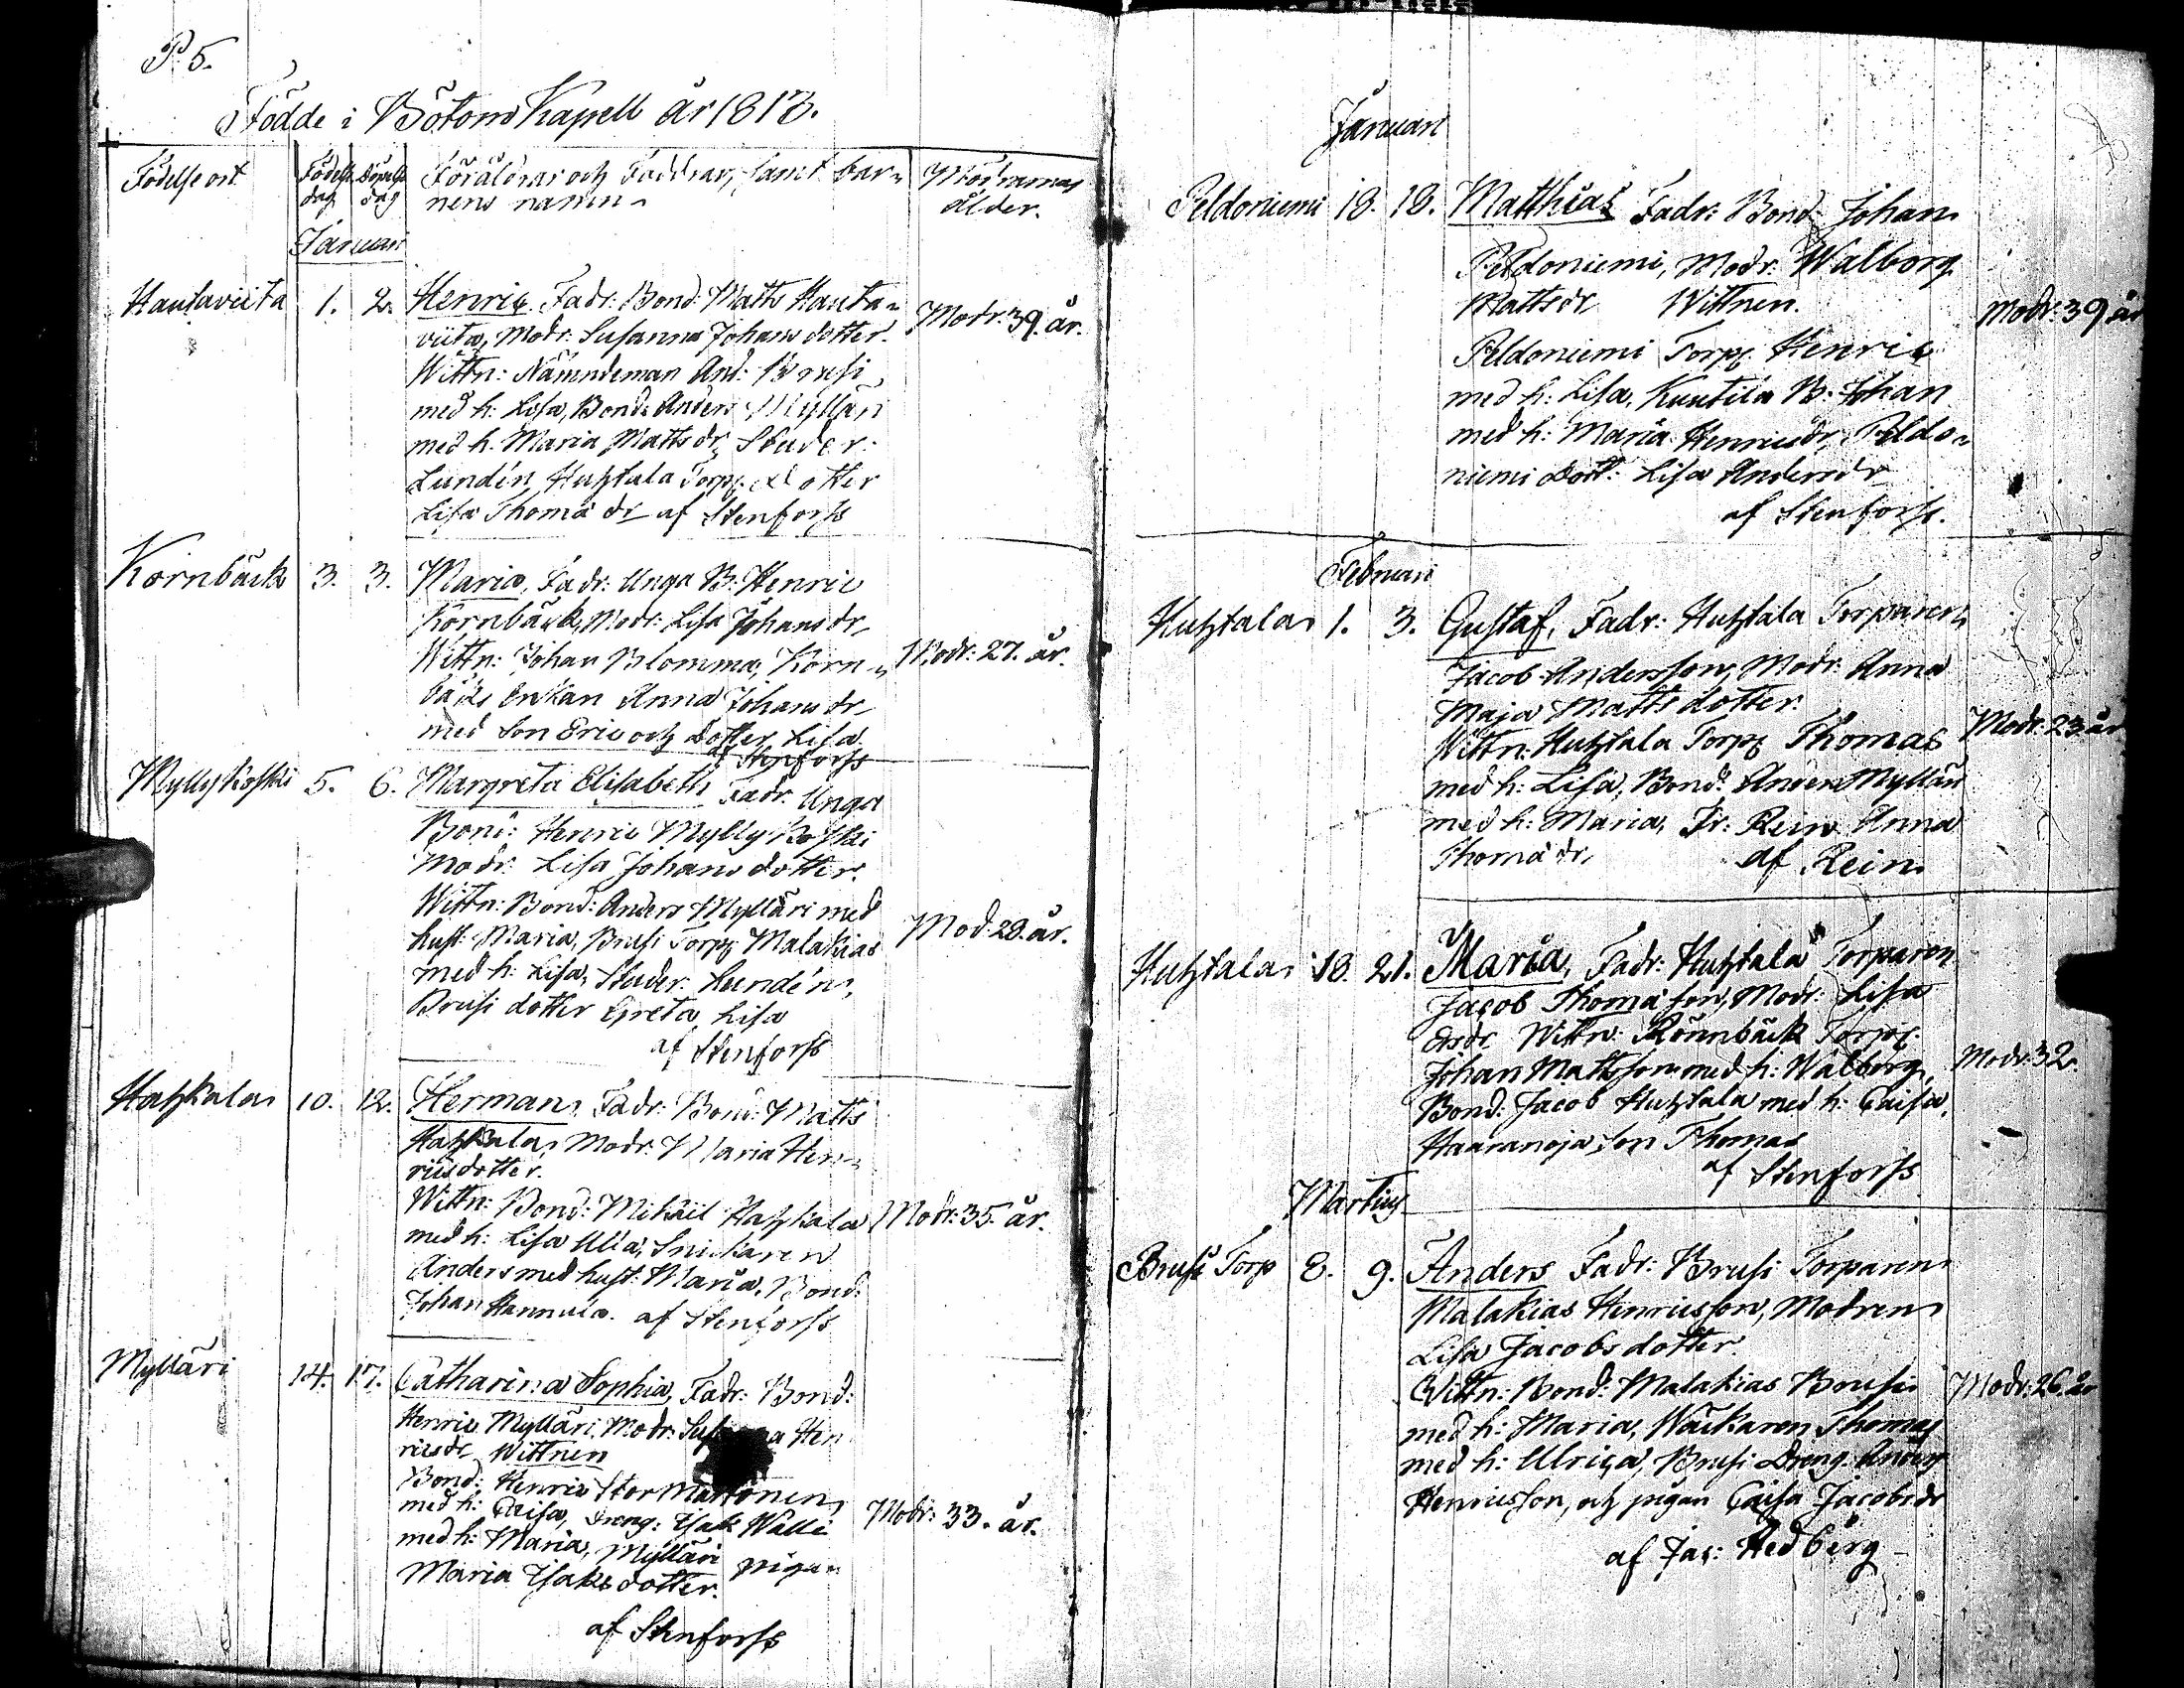 P. 5.
Födde i Bötom Kapell år 1813.
Födelse ort
Födelse dag
Döpelse dag
Föräldrar och Faddrar, samt bar=
nens namn
Modrarnas
ålder.
Januari
Hautaviita 1. 2. Henric, Fadr: Bond: Matts Hauta=
viita, Modr: Susanna Johans dotter.
Modr: 39. år.
Wittn: Nämndeman And: Brusi
med h: Lisa, Bond: Anders Mylläri
med h. Maria Matts dr, Studer:
Lundén, Huhtala Torp: dotter
Lisa Thomä dr af Stenforss
Körnbäck 3. 3. Maria, Fadr: Unga B: Henric
Körnbäck, Modr: Lisa Johansdr,
Wittn: Johan Blomma, Körn=
Modr: 27. år.
bäcks Enkan Anna Johans dr,
med Son Eric och Dotter Lisa
af Stenforss
Myllykoski 5. 6. Margreta Elisabeth, Fadr. Unga
Bond: Henric Myllykoski
Modr: Lisa Johans dotter.
Wittn: Bond: Anders Mylläri med
hust: Maria, Brusi Torp: Malakias
Mod: 28. år.
med h: Lisa, Studer: Lundén,
Brusi dotter Greta Lisa
af Stenforss
Hahkala 10. 12. Herman, Fadr: Bond: Matts
Hahkala, Modr: Maria Hen=
ricsdotter.
Wittn: Bond: Mikäil Hahkala
Modr: 35. år.
med h: Lisa Ulla, Snickaren
Anders med hust: Maria, Bond:
Johan Hannula. af Stenforss
Mylläri 14. 17. Catharina Sophia, Fadr: Bond:
Henric Mylläri, Modr: Hen
ricsdr Wittnen
Bond: Henric Stor Martonen,
med h: Caisa, Dreng: Isak Walli
Modr: 33. år.
med h: Maria, Mylläri pigan
Maria Isaks dotter.
af Stenforss
Januari
Peldoniemi 18. 18. Matthias Fadr: Bond: Johan
Peldoniemi, Modr: Walborg
Mattsdr Wittnen.
Modr: 39 år
Peldoniemi Torp: Henric
med h: Lisa, Kuutila B: Johan
med h: Maria Henricsdr, Peldo=
niemi Dott: Lisa Andersdr
af Stenforss.
Februari
Huhtala 1. 3. Gustaf, Fadr: Huhtala Torparen
Jacob Andersson, Modr: Anna
Maja Matts dotter.
Modr: 23 år
Wittn: Huhtala Torp: Thomas
med h: Lisa, Bond: Anders Mylläri
med h: Maria, Fr: Rein Anna
Thomä dr, af Rein
Huhtala 18. 21. Maria, Fadr: Huhtala Torparen
Jacob Thomä son, Modr: Lisa
Wittn: Rönnbäck Torp:
Johan Mattsson med h: Walborg,
Modr: 32.
Bond: Jacob Huhtala med h: Caisa,
Haaranoja Son Thomas
af Stenforss
Martius
Brusi Torp 8. 9. Anders Fadr: Brusi Torparen
Malakias Henricsson, Modren
Lisa Jacobs dotter.
Wittn: Bond: Malakias Brusi
Modr: 26 år
med h: Maria, Thomas
med h: Ulrica, Brusi Dreng Anders
Henricsson, och pigan Caisa Jacobsdr
af Jac: Hedberg